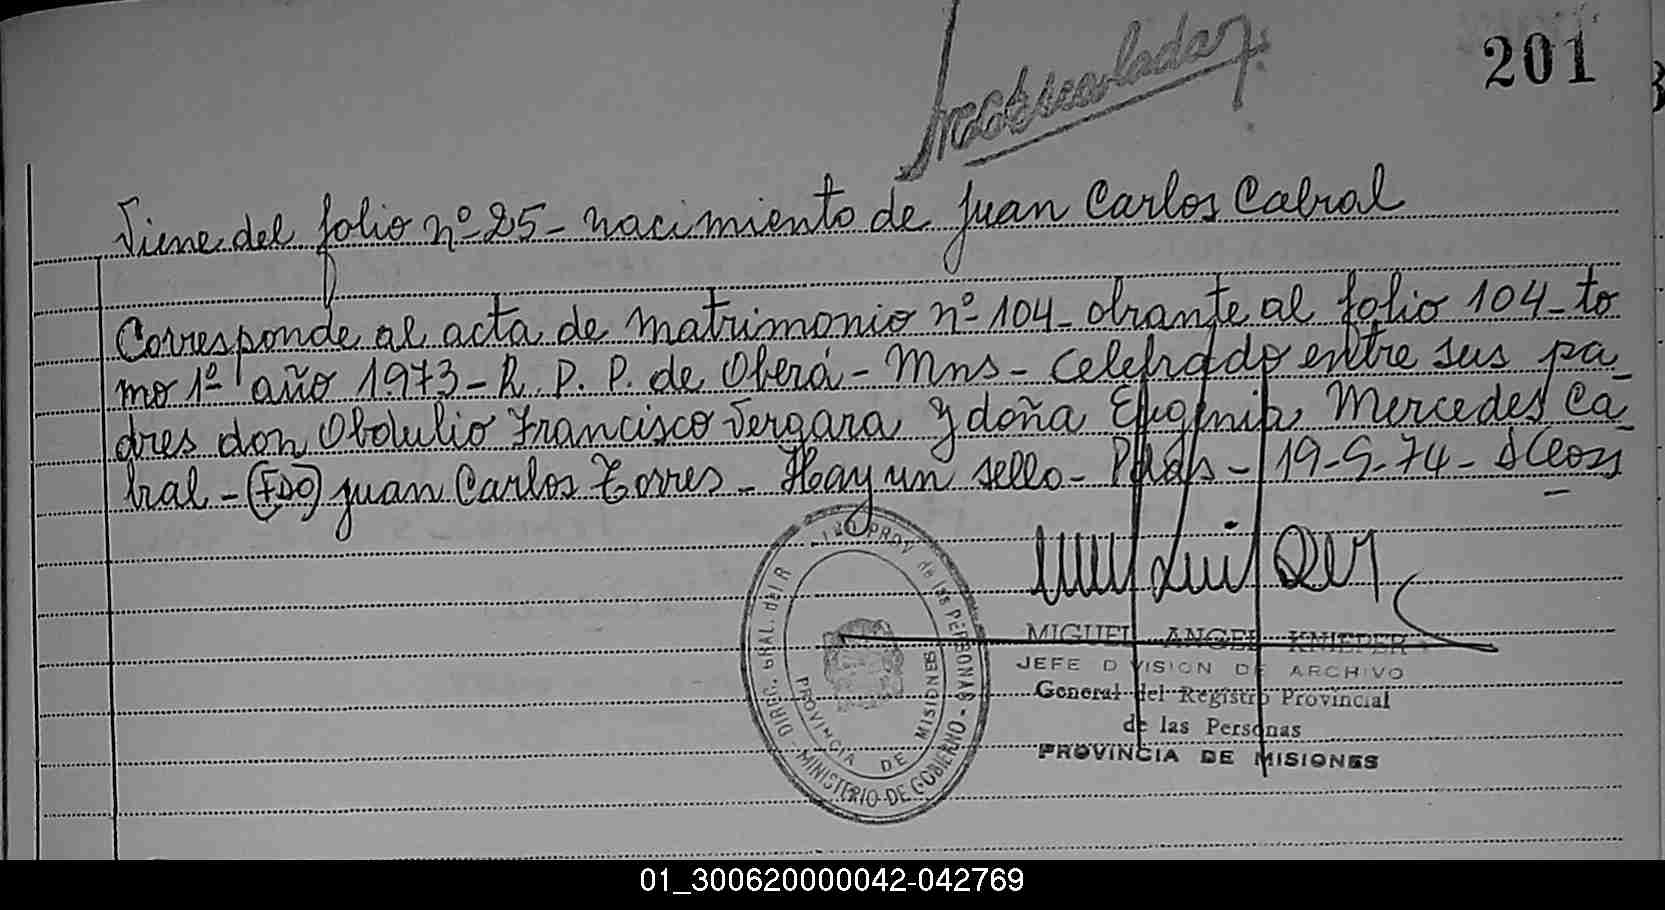 201
Inmatriculado
Viene del folio nº 25 - nacimiento de Juan Carlos Cabral
Corresponde al acta de matrimonio nº 104 - obrante al folio 104 - to
mo 1º año 1973 - R. P. P. de Oberá - Mns - celebrado entre sus pa
dres don Obdulio Francisco Vergara y doña Eugenia Mercedes Ca
bral - (FDO) Juan Carlos Torres - Hay un sello - Pdas - 19-9-74 -
DIREC. GRAL. del R PROV de las PERSONAS - MINISTERIO DE GOBIERNO
PROVINCIA DE MISIONES
MIGUEL ANGEL KNIEPER
JEFE DIVISION DE ARCHIVO
General del Registro Provincial
de las Personas
PROVINCIA DE MISIONES
01_300620000042-042769